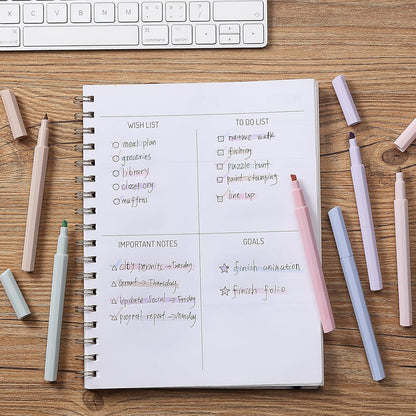 Z X C V B N M < , > . ? / shift
command option command option
WISH LIST
meal plan
groceries
library
closet org
muffins
TO DO LIST
nature walk
fishing
puzzle hunt
paint stamping
line up
IMPORTANT NOTES
city permits → Tuesday
Grant → Thursday
Update Social → Friday
payroll report → Monday
GOALS
finish animation
finish folio